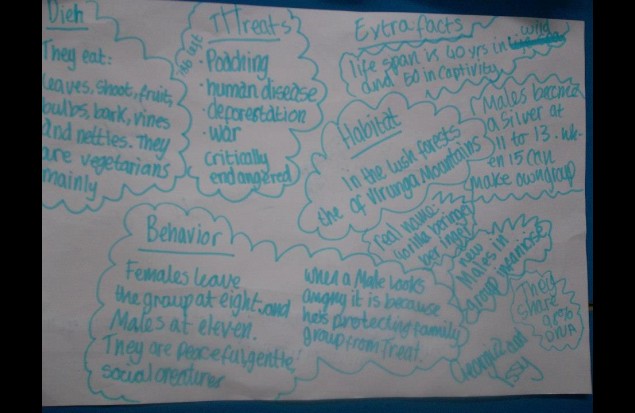 Dieh
They eat:
leaves, shoot, fruit,
bulbs, bark, vines
and nettles. They
are vegetarians
mainly
THreats
left
· Poaching
· human disease
deforestation
· war
critically
endangered
Extra facts
life span is 40 yrs in wild
and 50 in captivity
Habitat
In the lush forests
the of Virunga Mountains
Males become
a Silver at
11 to 13. wh-
en 15 can
make own group
real name
Gorilla beringei
ber ingei
new
Males in
group
They
share
DNA
Behavior
Females leave
the group at eight, and
Males at eleven.
They are peaceful, gentle
social creatures
when a Male looks
angry it is because
he's protecting family
group from Treat.
Georgia and
Issy